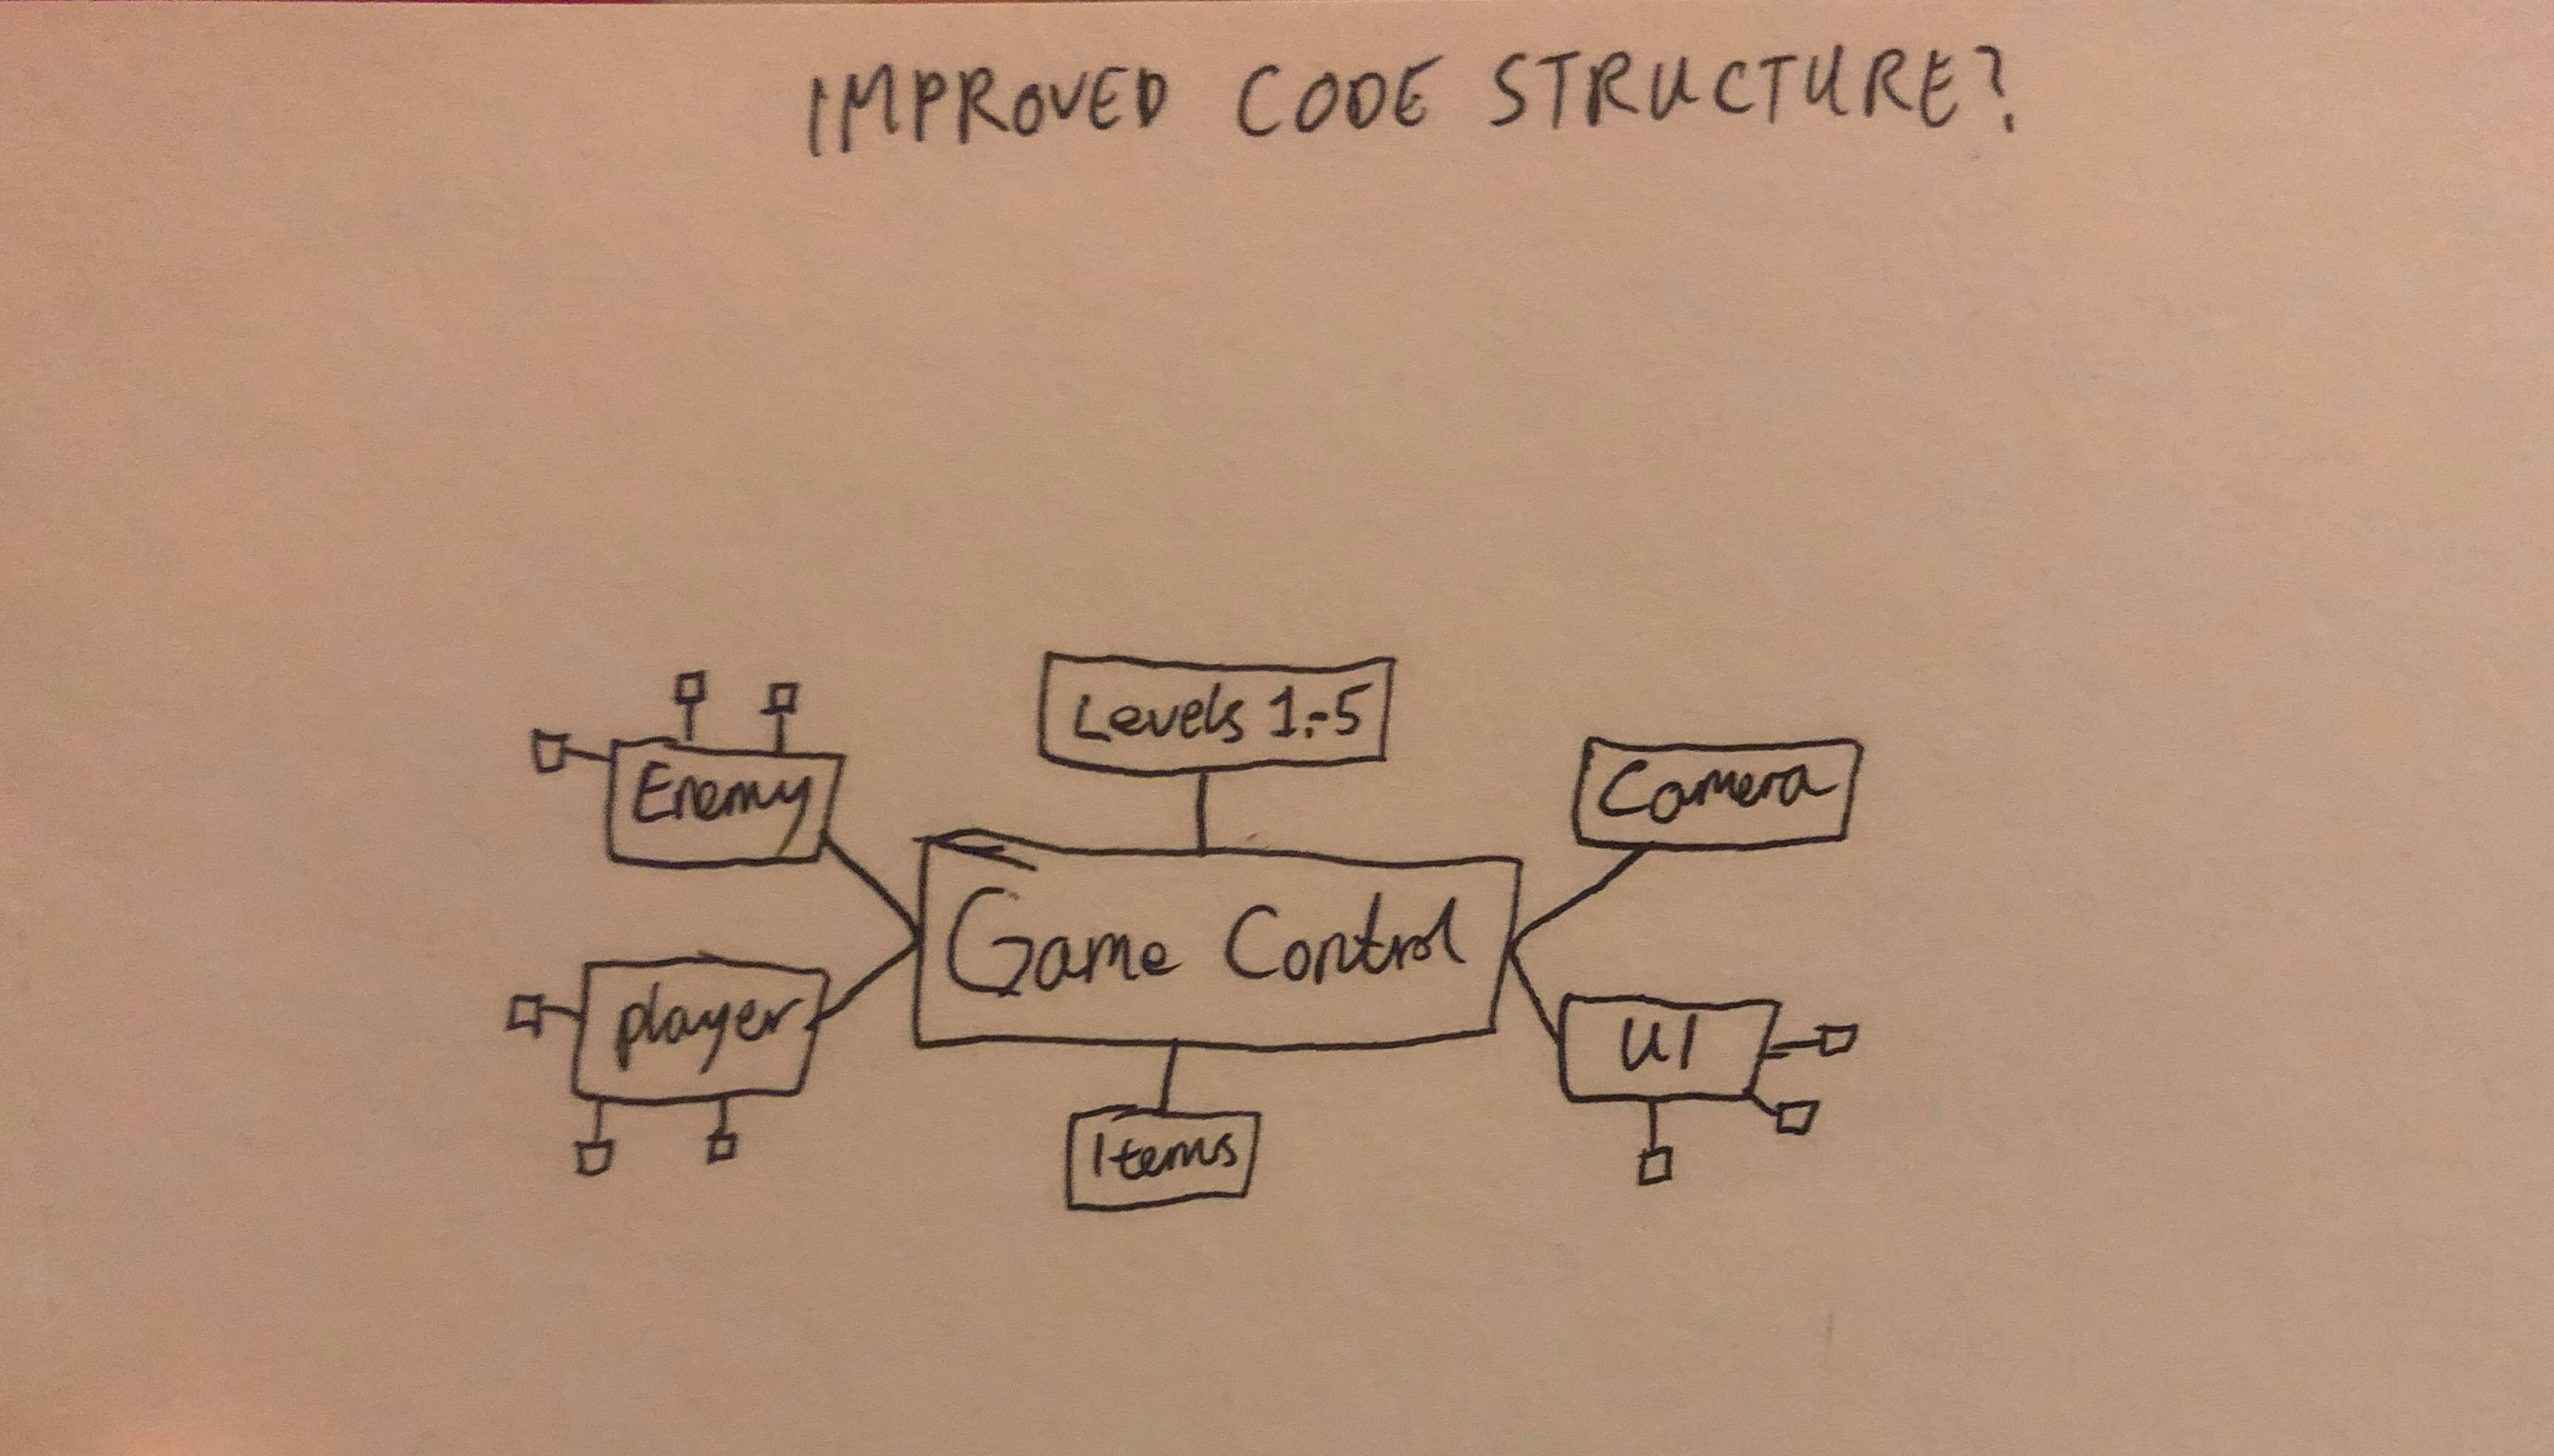 IMPROVED CODE STRUCTURE?
Levels 1-5
Enemy
Camera
Game Control
player
UI
Items